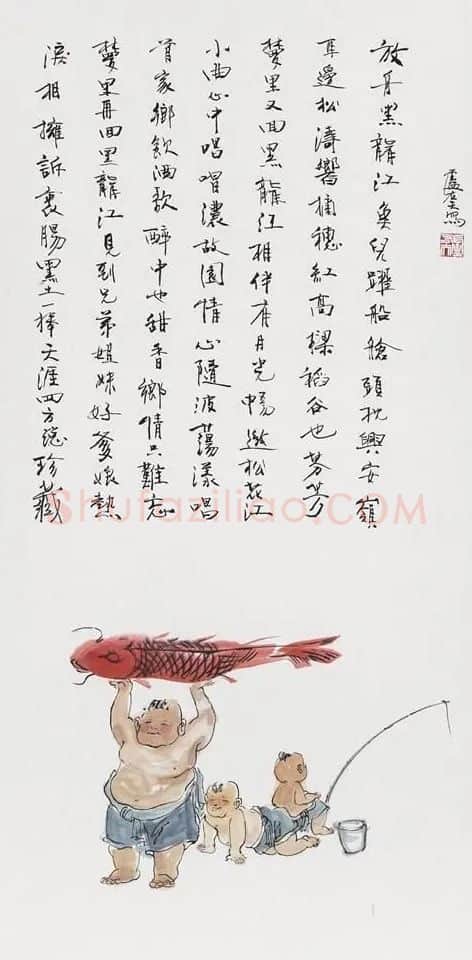 放舟黑龍江魚兒躍船艙頭枕興安嶺
耳邊松濤響穗紅高樑稻谷也芬芳
夢里又回黑龍江相伴有月光暢松花江
小曲心中唱唱濃故園情心隨波蕩漾唱
首家鄉飲酒歌醉中也甜香鄉情只難忘
夢里再回黑龍江見到兄弟姐妹好爹娘熱
淚相擁訴衷腸黑土一捧天涯四方總珍藏
Shufaziliao.COM